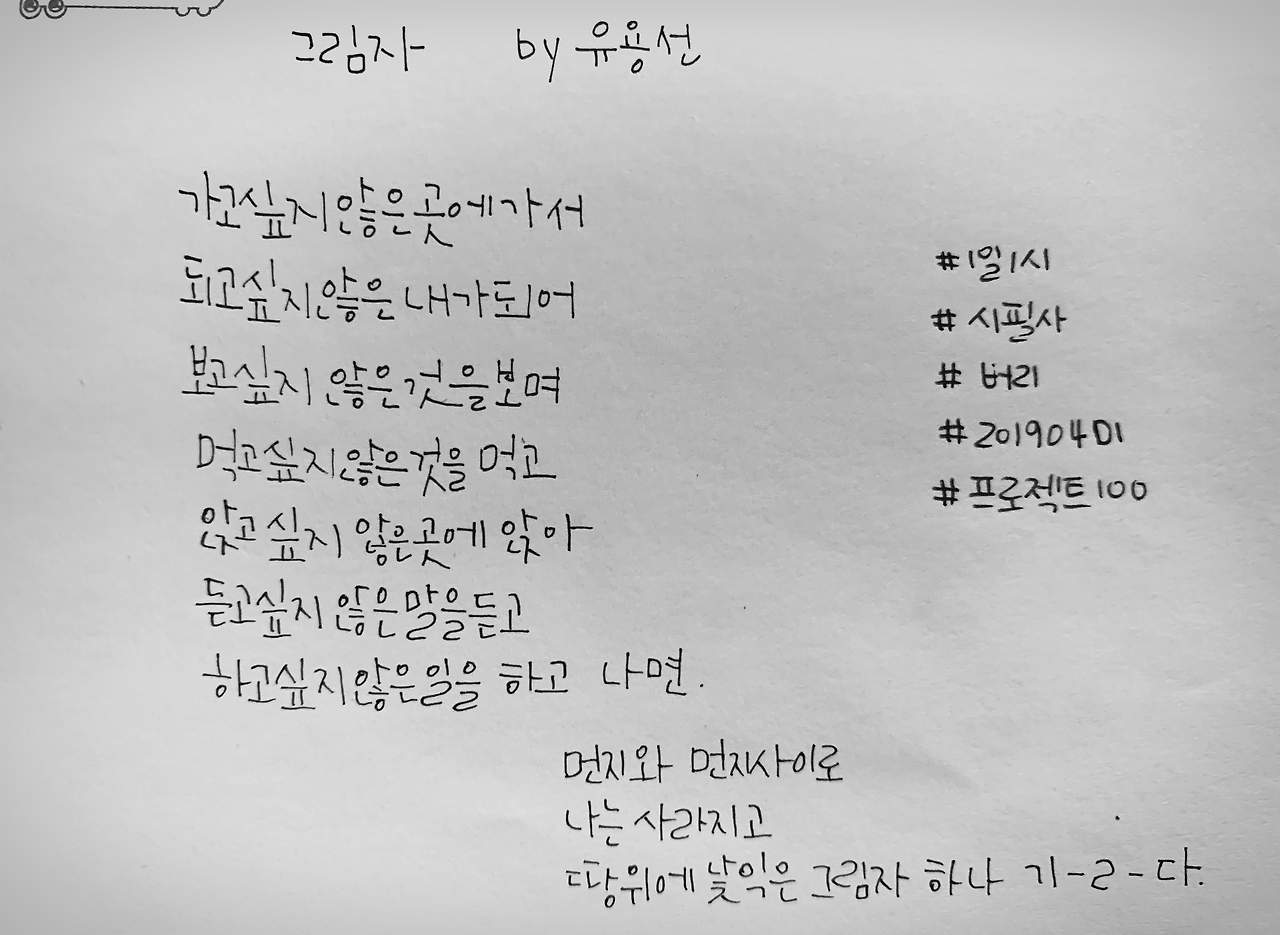 그림자 by 유용선
가고싶지않은곳에가서
되고싶지않은내가되어
보고싶지 않은것을보며
먹고싶지않은것을 먹고
앉고 싶지 않은곳에 앉아
듣고싶지 않은말을듣고
하고싶지않은일을 하고 나면.
먼지와 먼지사이로
나는 사라지고
땅위에 낯익은 그림자 하나 기-ㄹ-다.
#1일1시
# 시필사
# 버리
#20190401
#프로젝트100